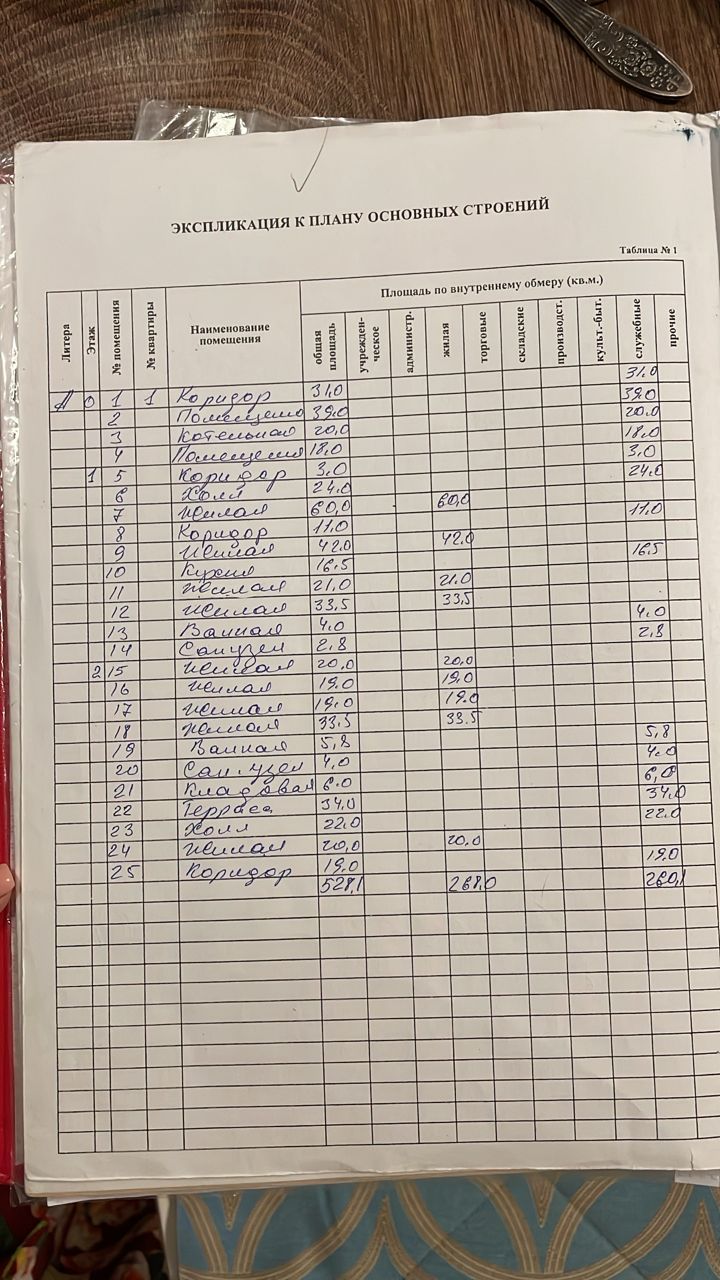 ЭКСПЛИКАЦИЯ К ПЛАНУ ОСНОВНЫХ СТРОЕНИЙ
Таблица № 1
Литера Этаж № помещения № квартиры Наименование помещения Площадь по внутреннему обмеру (кв.м.)
общая площадь учрежден-ческое администр. жилая торговые складские производст. культ.-быт. служебные прочие
А 0 1 1 Коридор 31.0 31.0
2 Помещение 39.0 39.0
3 Котельная 20.0 20.0
4 Помещение 18.0 18.0
1 5 Коридор 3.0 3.0
6 Холл 24.0 24.0
7 Жилая 60,0 60,0
8 Коридор 11.0 11.0
9 Жилая 42.0 42.0
10 Кухня 16.5 16.5
11 Жилая 21.0 21.0
12 Жилая 33,5 33,5
13 Ванная 4.0 4.0
14 Санузел 2.8 2,8
2 15 Жилая 20.0 20.0
16 Жилая 19.0 19.0
17 Жилая 19.0 19.0
18 Жилая 33.5 33.5
19 Ванная 5,8 5,8
20 Сан.узел 4.0 4.0
21 Кладовая 6.0 6,0
22 Терраса 34.0 34.0
23 Холл 22.0 22.0
24 Жилая 20,0 20.0
25 Коридор 19.0 19.0
528,1 268.0 260,1